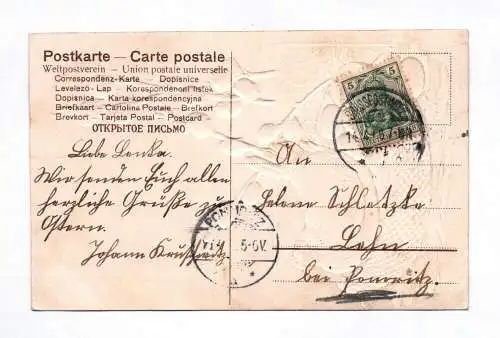 Postkarte — Carte postale
Weltpostverein – Union postale universelle
Correspondenz-Karte — Dopisnice
Levelező-Lap — Korespondenzní lístek
Dopisnica — Karta korespondencyjna
Briefkaart – Cartolina Postale – Brefkort
Brevkort – Tarjeta Postal – Postcard
ОТКРЫТОЕ ПИСЬМО
Liebe Lenka.
Wir senden Euch allen
herzliche Grüße zu
Ostern.
Johann
5 5
An
Helene Schletzke
Lehn
bei Pommritz.
5-6V.